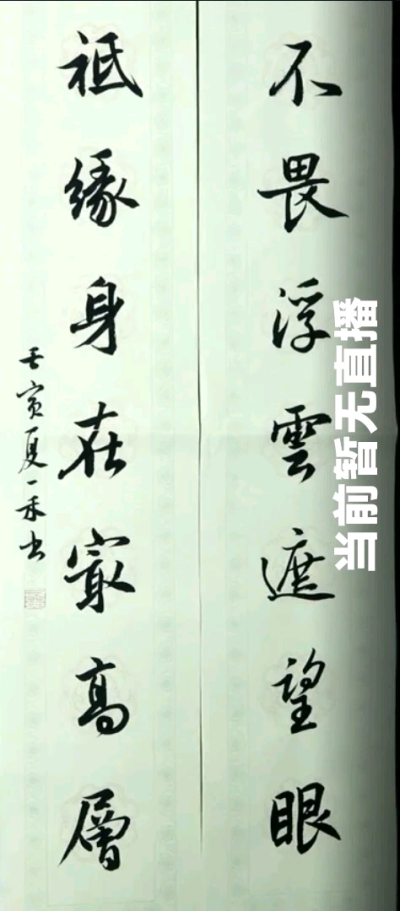 不畏浮雲遮望眼
祗緣身在寂高層
壬寅夏一禾书
当前暂无直播